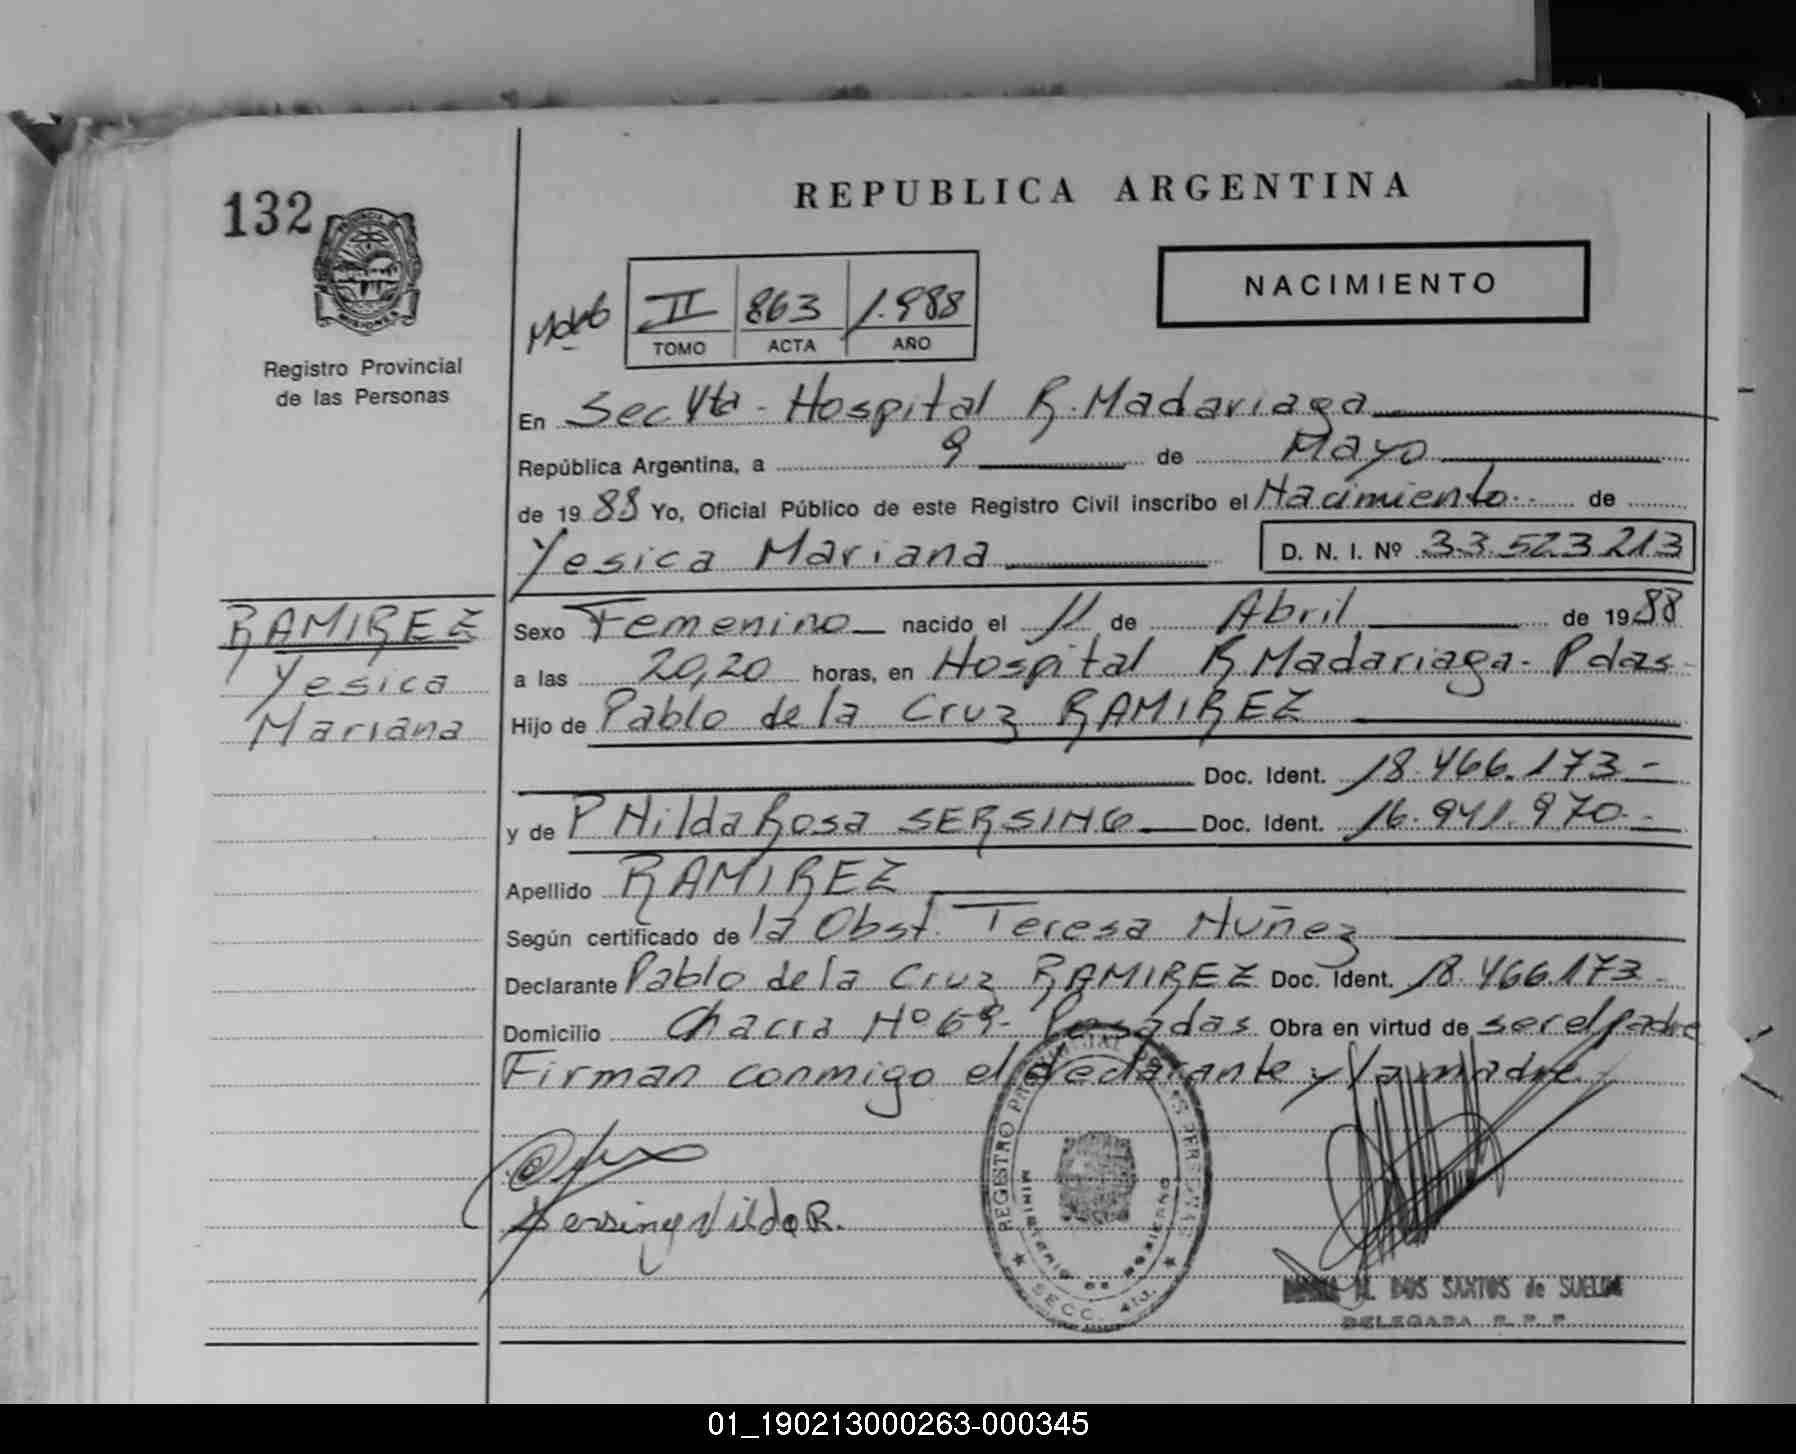 REPUBLICA ARGENTINA
132
PROVINCIA DE
MISIONES
NACIMIENTO
II 863 1.988
TOMO ACTA AÑO
Registro Provincial
de las Personas
En Sec 4ta - Hospital R. Madariaga
República Argentina, a 9 de Mayo
de 19 88 Yo, Oficial Público de este Registro Civil inscribo el Nacimiento de
Yesica Mariana D. N. I. Nº 33.523.213
RAMIREZ
Yesica
Mariana
Sexo Femenino nacido el 11 de Abril de 19 88
a las 20,20 horas, en Hospital R. Madariaga - Pdas -
Hijo de Pablo de la Cruz RAMIREZ
Doc. Ident. 18.466.173 -
y de Nilda Rosa SERSING Doc. Ident. 16.941.970 -
Apellido RAMIREZ
Según certificado de la Obst. Teresa Nuñez
Declarante Pablo de la Cruz RAMIREZ Doc. Ident. 18.466.173 -
Domicilio Chacra Nº 69 - Posadas Obra en virtud de ser el padre
Firman conmigo el declarante y la madre
Sersing Nilda R.
REGISTRO PROVINCIAL DE LAS PERSONAS
MINISTERIO DE GOBIERNO
SECC. 4ta.
DOS SANTOS de SUELDO
DELEGADA R. P. P.
01_190213000263-000345